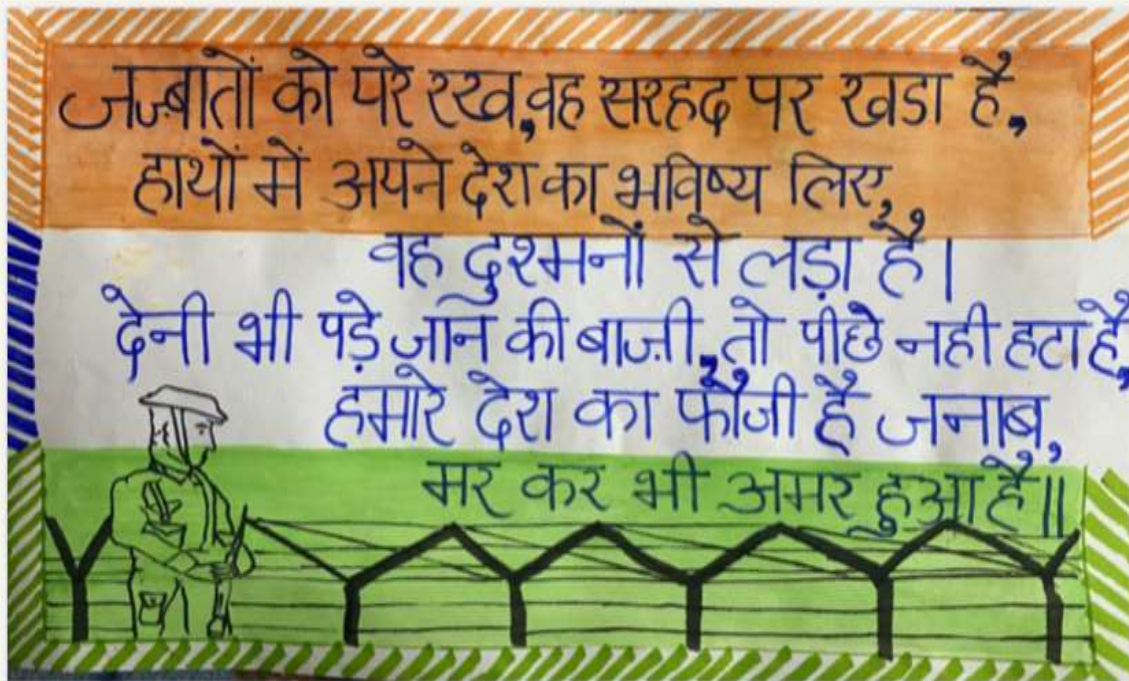 जज़्बातों को परे रख,वह सरहद पर खडा है,
हाथों में अपने देश का भविष्य लिए,
वह दुश्मनों से लड़ा है।
देनी भी पड़े जान की बाज़ी,तो पीछे नही हटा है,
हमारे देश का फौजी है जनाब,
मर कर भी अमर हुआ है॥